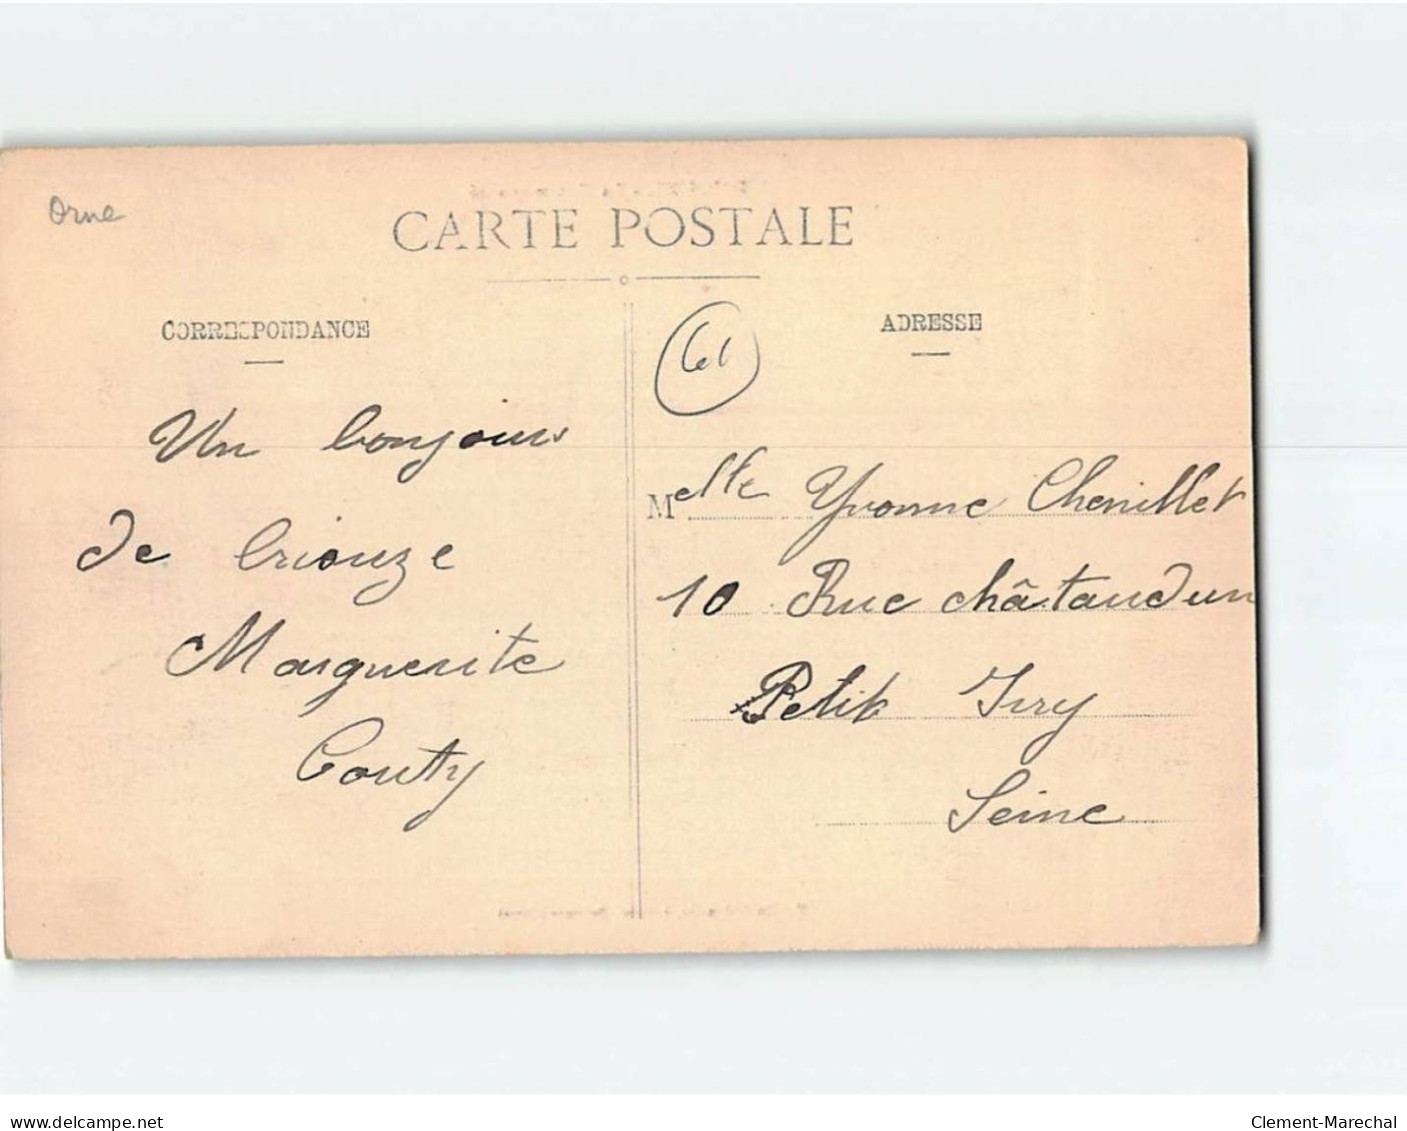 Orne
CARTE POSTALE
CORRESPONDANCE
Un bonjour
de briouze
Marguerite
Couty
61
ADRESSE
Melle Yvonne Chenillet
10 Rue châtaudun
Petit Ivry
Seine
www.delcampe.net
Clement-Marechal